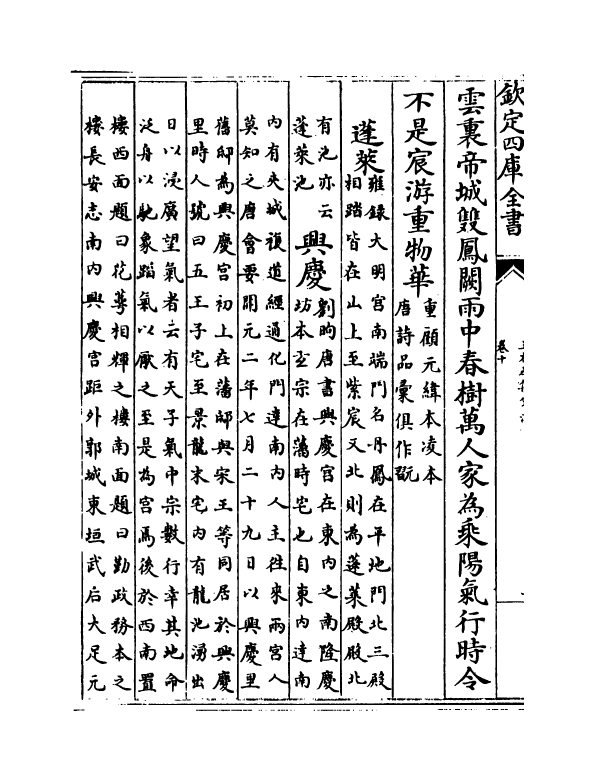 欽定四庫全書
卷十
雲裏帝城雙鳳闕雨中春樹萬人家為乘陽氣行時令
不是宸游重物華
重顧元緯本凌本
唐詩品彙俱作翫
蓬萊
雍録大明宫南端門名丹鳳在平地門北三殿
相踏皆在山上至紫宸又北則為蓬萊殿殿北
有池亦云
蓬萊池
興慶
劉昫唐書興慶宫在東内之南隆慶
坊本玄宗在藩時宅也自東内達南
内有夾城複道經通化門達南内人主往來兩宫人
莫知之唐會要開元二年七月二十九日以興慶里
舊邸為興慶宫初上在藩邸與宋王等同居於興慶
里時人號曰五王子宅至景龍末宅内有龍池湧出
日以浸廣望氣者云有天子氣中宗數行幸其地命
泛舟以馳象蹈氣以厭之至是為宫焉後於西南置
樓西面題曰花萼相輝之樓南面題曰勤政務本之
樓長安志南内興慶宫距外郭城東垣武后大足元